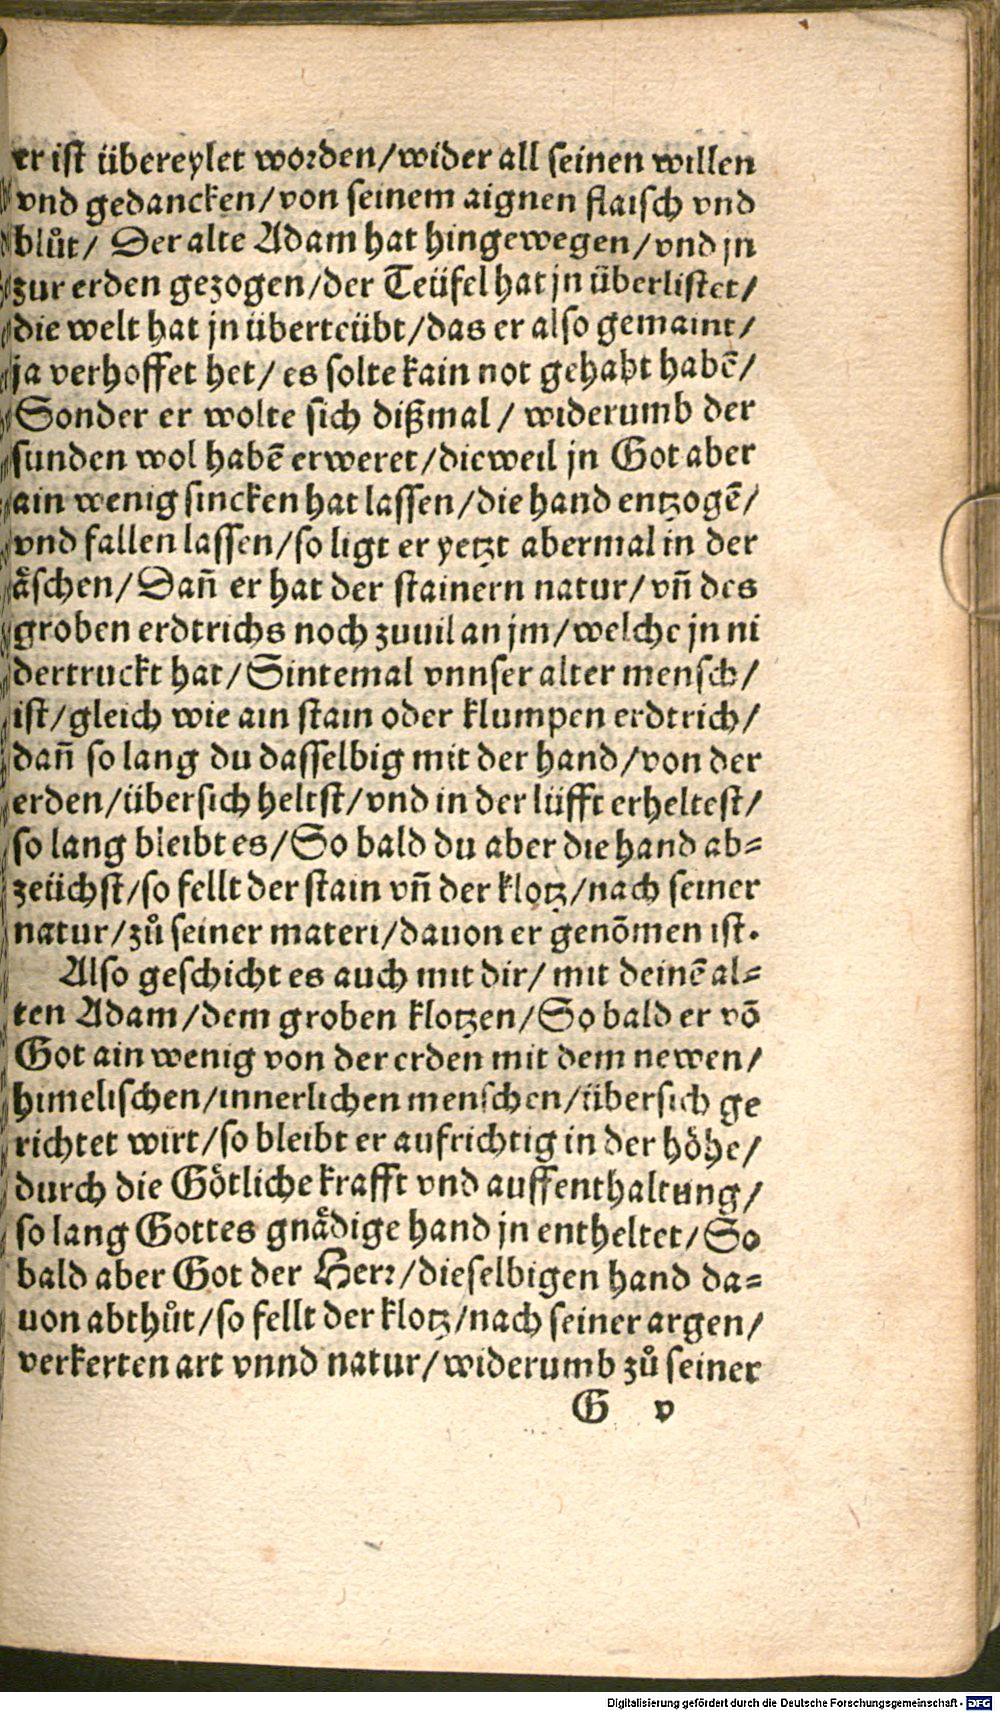 er ist übereylet worden/wider all seinen willen
vnd gedancken/von seinem aignen flaisch vnd
blůt/ Der alte Adam hat hingewegen/vnd jn
zur erden gezogen/der Teüfel hat jn überlistet/
die welt hat jn überteübt/das er also gemaint/
ja verhoffet het/ es solte kain not gehabt habē/
Sonder er wolte sich dißmal/ widerumb der
sunden wol habē erweret/dieweil jn Got aber
ain wenig sincken hat lassen/die hand entzogē/
vnd fallen lassen/so ligt er yetzt abermal in der
åschen/Dañ er hat der stainern natur/vñ des
groben erdtrichs noch zuuil an jm/welche jn ni
dertruckt hat/Sintemal vnnser alter mensch/
ist/gleich wie ain stain oder klumpen erdtrich/
dañ so lang du dasselbig mit der hand/von der
erden/übersich heltst/vnd in der lüfft erheltest/
so lang bleibt es/So bald du aber die hand ab=
zeüchst/so fellt der stain vñ der klotz/nach seiner
natur/zů seiner materi/dauon er genõmen ist.
Also geschicht es auch mit dir/ mit deinē al=
ten Adam/dem groben klotzen/So bald er võ
Got ain wenig von der erden mit dem newen/
himelischen/innerlichen menschen/übersich ge
richtet wirt/so bleibt er aufrichtig in der höhe/
durch die Götliche krafft vnd auffenthaltung/
so lang Gottes gnådige hand jn entheltet/So
bald aber Got der Herr/dieselbigen hand da=
uon abthůt/so fellt der klotz/nach seiner argen/
verkerten art vnnd natur/widerumb zů seiner
G v
Digitalisierung gefördert durch die Deutsche Forschungsgemeinschaft - DFG